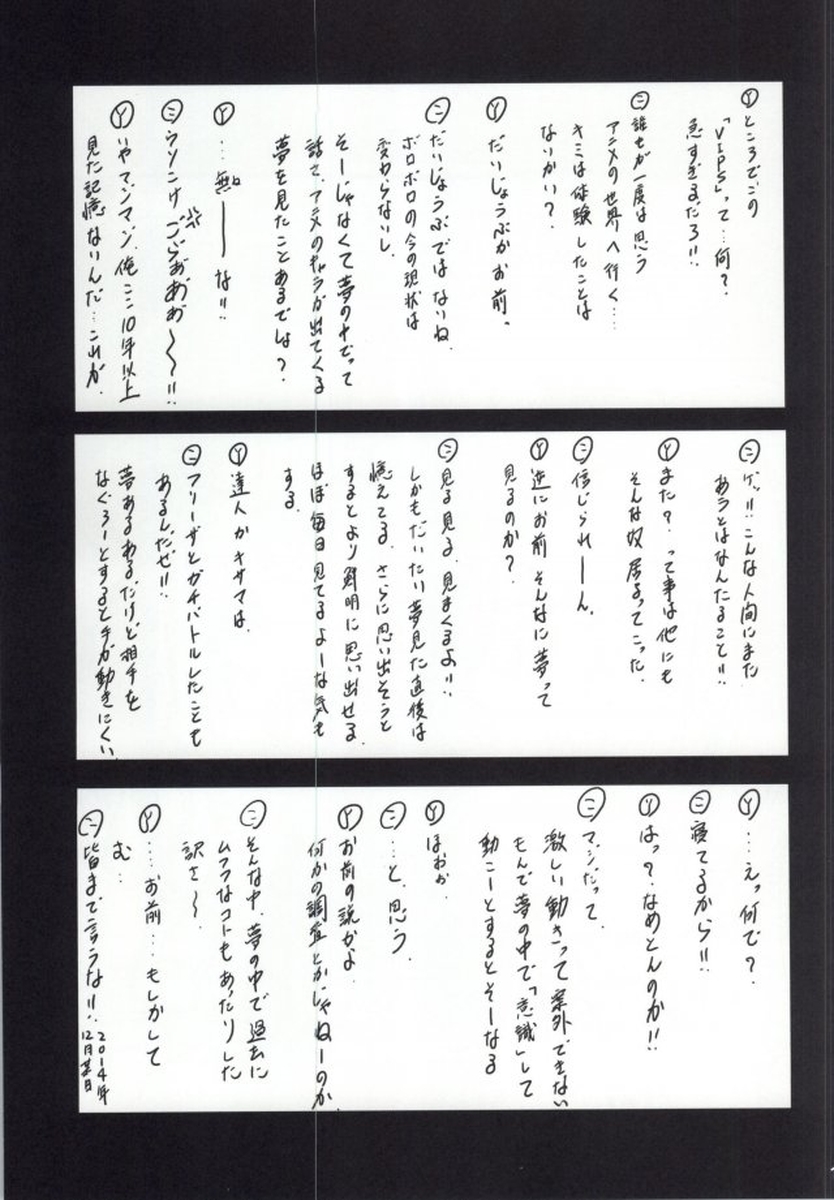 Ⓨところでこの
「VIPS」って…何？
急すぎるだろ!!
㊁誰もが一度は思う
アニメの世界へ行く…
キミは体験したことは
ないかい？
Ⓨだいじょうぶかお前。
㊁だいじょうぶではないね。
ボロボロの今の現状は
変わらないし
そーじゃなくて夢の中でって
話さ、アニメのキャラが出てくる
夢を見たことあるでしょ？
Ⓨ…無ぇ——な!!
㊁ウソこけ ごらぁぁぁ〜〜!!
Ⓨいやマンマン、俺ここ10年以上
見た記憶ないんだ…これが。
㊁ゲッ!!こんな人間にまた
あうとはなんたること!!
Ⓨまた？って事は他にも
そんな奴居るってこった。
㊁信じられーん
Ⓨ逆にお前そんなに夢って
見るのか？
㊁見る見る、見まくるよ!!
しかもだいたい夢見た直後は
憶えてる。さらに思い出そうと
するとより鮮明に思い出せる。
ほぼ毎日見てるよーな気も
する。
Ⓨ達人かキサマは。
㊁フリーザとガチバトルしたことも
あるんだぜ!!
夢あるあるだけど相手を
なぐろーとすると手が動きにくい
Ⓨ…えっ何で？
㊁寝てるから!!
Ⓨはっ？なめとんのか!!
㊁マジだって。
激しい動きって案外できない
もんで夢の中で「意識」して
動こーとするとそーなる
Ⓨほぉぉ。
㊁…と、思う。
Ⓨお前の説かよ
何かの調査とかじゃねーのか。
㊁そんな中、夢の中で過去に
ムフフなコトもあったりした
訳さ〜。
Ⓨ…お前…もしかして
む…
㊁皆まで言うな!!
2014年
12月某日